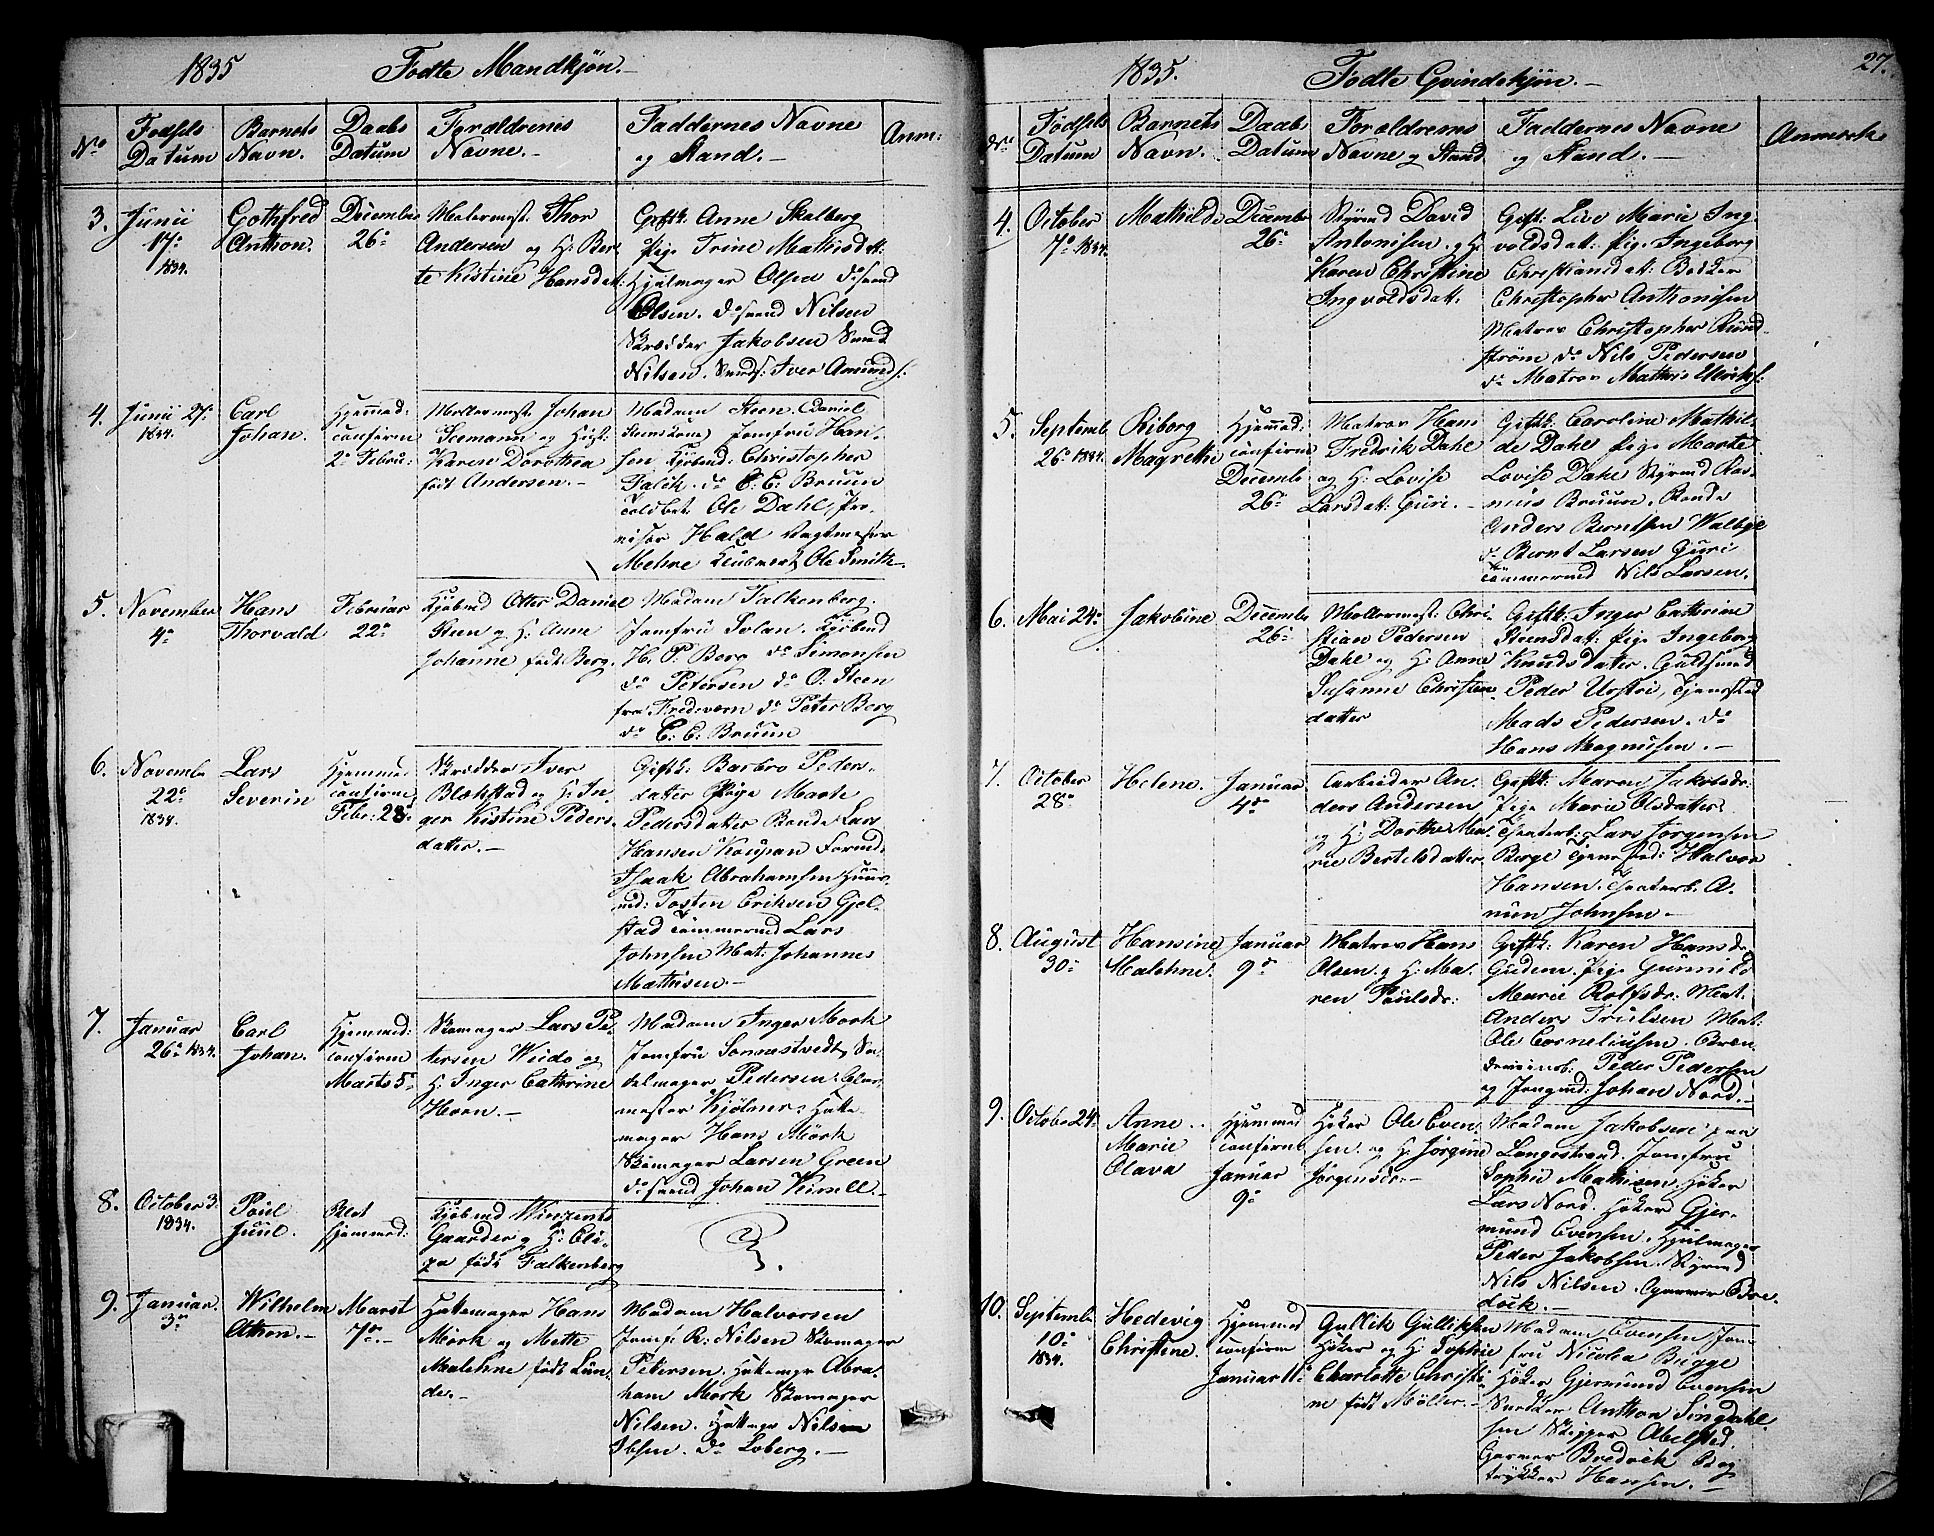 1835
Fødte Mandkjøn.
No
Fødsels Datum
Barnets Navn.
Daabs Datum
Forældrenes Navne.
Faddernes Navne og Stand.
Anm:
3.
Junii
17de
1834.
Gothfred
Anthon.
December
26de
Møllermest: Thor
Andersen og H: Ber
te Kistine Hansdatt:
Giftk: Anne Skalberg
Pige Trine Mathisdtt.
Hjulmager Olsen do svend
Olsen. do svend Nilsen
Skrædder Jakobsen Smed
Nilsen. Smeds: Iver Amunds:
4.
Junii 27de
1834.
Carl
Johan.
Hjemmed:
confirm
2de Febru:
Møllermest. Johan
Seemann og Hust:
Karen Dorothea
født Andersen.
Madam Steen (Daniel
Steens Kone) Jomfru Han-
sen Kjøbmd: Christopher
Falck. do C. C. Bruun
Toldbet. Ole Dahl, Pro
visor Hald Vagtmester
Mehre Ole Smith
5.
November
4de
Hans
Thorvald
Februar
22de
Kjøbmd Otter Daniel
Steen og H: Anne
Johanne født Berg.
Madam Falkenberg.
Jomfru Solan. Kjøbmd
H. P. Berg do Simonsen
do Petersen do O: Steen
fra Fredeværn do Peter Berg
do C. C. Bruun
6.
Novemb
22de
1834.
Lars
Severin
Hjemmed
confirm
Febr: 28de
Skrædder Iver
Blækstad og H: In-
ger Kistine Peders
datter.
Giftk: Barbro Peders
datter Pige Marte
Pedersdatter Bonde Lars
Hansen Formd:
Isaak Abrahamsen Huus
md: Tosten Eriksen Gjel-
stad Tømmermd Lars
Johnsen Mat: Johannes
Mathisen.
7.
Januar
26de 1834.
Carl
Johan.
Hjemmed:
confirm
Marts 5te
Skomager Lars Pe-
tersen Weido og
H: Inger Cathrine
Horn.
Madam Inger Mørk
Jomfru Sonnestvedt, Sa-
delmager Pedersen. Glar-
mester Kjølners Hatte-
mager Hans Mörk
Skomager Larsen Green
do svend Johan Kirsell.
8.
October 3
1834.
Poul
Juul.
Blot
hjemmed:
Kjøbmd Winzents
Gaarder og H: Eli-
za født Falkenberg
9.
Januar
3de
Wilhelm
Athon.
Marst
7de
Hattemager Hans
Mørk og Mette
Malehne født Lun-
de.
Madam Halvorsen
Jomf: R: Nilsen Skomager
Petersen. Hattemgr Abra-
ham Mørk Skomager
Nilsen. Hattemgr Nilsen
Ibsen. do Loberg.
1835.
Fødte Qvindekjøn.
27.
No
Fødsels Datum
Barnets Navn.
Daabs Datum
Forældrenes Navne og Stand
Faddernes Navne og Stand.
Anmærk
4.
October
7de 1834.
Mathilde
Decembe
26de
Styrmd David
Antonisen. og H:
Karen Christine
Ingvoldsdatt.
Gift: Live Marie Ing-
voldsdatt. Pige Ingeborg
Christiansdatt: Bødker
Christopher Anthonisen
Matros Christopher Rund-
strøm do Nils Pedersen
do Matros Mathis Ellriks:
5.
Septemb.
26de 1834.
Riborg
Magrethe
Hjemmed:
confirm
Decembe
26de
Matros Hans
Fredrik Dahl
og H: Lovise
Larsdatt: Guri.
Giftk: Caroline Mathil-
de Dahl Pige Marte
Lovise Dahl Styrmd Ras-
mus Bruun. Bonde
Anders Berntsen Walbye
do Bernt Larsen Guri
Tømmermd Nils Larsen.
6.
Mai 24de
Jakobine
Decembe
26de
Møllermest: Chri
stian Pedersen
Dahl og H: Anne
Susanne Christen
datter
Giftk: Inger Cathrine
Steensdatt: Pige Ingeborg
Knudsdatter. Guldsmed
Peder Urstri, Tjenestkd
Mads Pedersen. do
Hans Magnusen.
7.
October
28de
Helene.
Januar
4de
Arbeider An-
ders Andersen
og H: Dorthe Ma-
rie Bertelsdatter
Giftk: Maren Jakobsdr.
Pige Marie Olsdatter.
Qvarterb: Lars Jørgensen
Berge Tjenestkd: Halvor
Hansen. Qvarterb. A-
nun Johnsen
8.
August
30de
Hansine
Malehne.
Januar
9de
Matros Hans
Olsen. og H: Ma-
ren Poulsdr:
Giftk: Karen Hansdr
Gudem. Pige Gunnild
Marie Rolfsdr: Mat.
Anders Trulsen Mat:
Ole Corneliusen. Bræn-
devinsb: Peder Pedersen
og Jongmd: Johan Nord.
9.
October 24de
Anne
Marie
Olava
Hjemmed
confirm
Januar
9de
Høker Ole Even
sen. og H: Jørgine
Jørgensdr.
Madam Jakobsen paa
Langestrand. Jomfru
Sophie Mathisen. Høker
Lars Nord. Høker Gjer-
mund Evensen. Hjulmager
Peder Jakobsen. Styrmd
Nils Nilsen. Garver Bre-
dock.
10.
Septemb
10de
1834.
Hedevig
Christine.
Hjemmed
confirm
Januar 11te
Gullik Gulliksen
Høker og H: Sophie
Charlotte Christi-
ne født Møller.
Madam Evensen Jom
fru Nicolea Bugge
Høker Gjermund Evensen
Snedker Anthon Singdahl-
sen Skipper Abelsted.
Garver Bredock Bog
trykker Hansen.